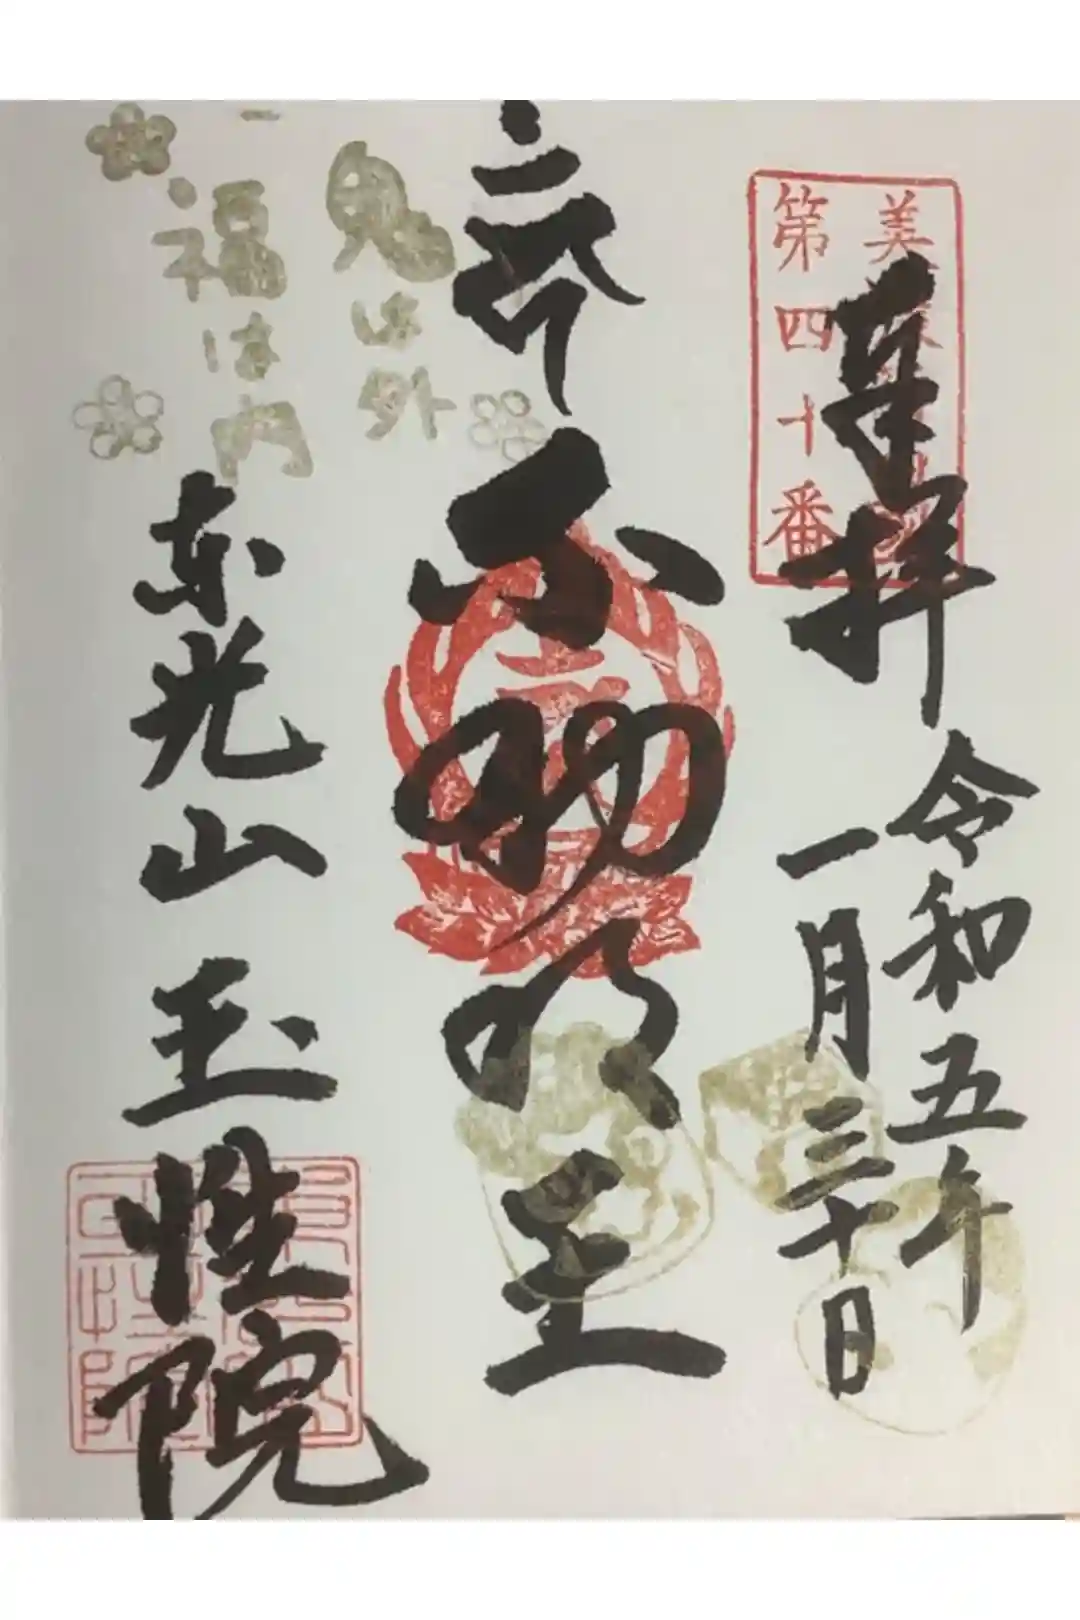 奉拝
令和五年
一月三十日
第四十番
不動明王
鬼は外
福は内
東光山玉性院